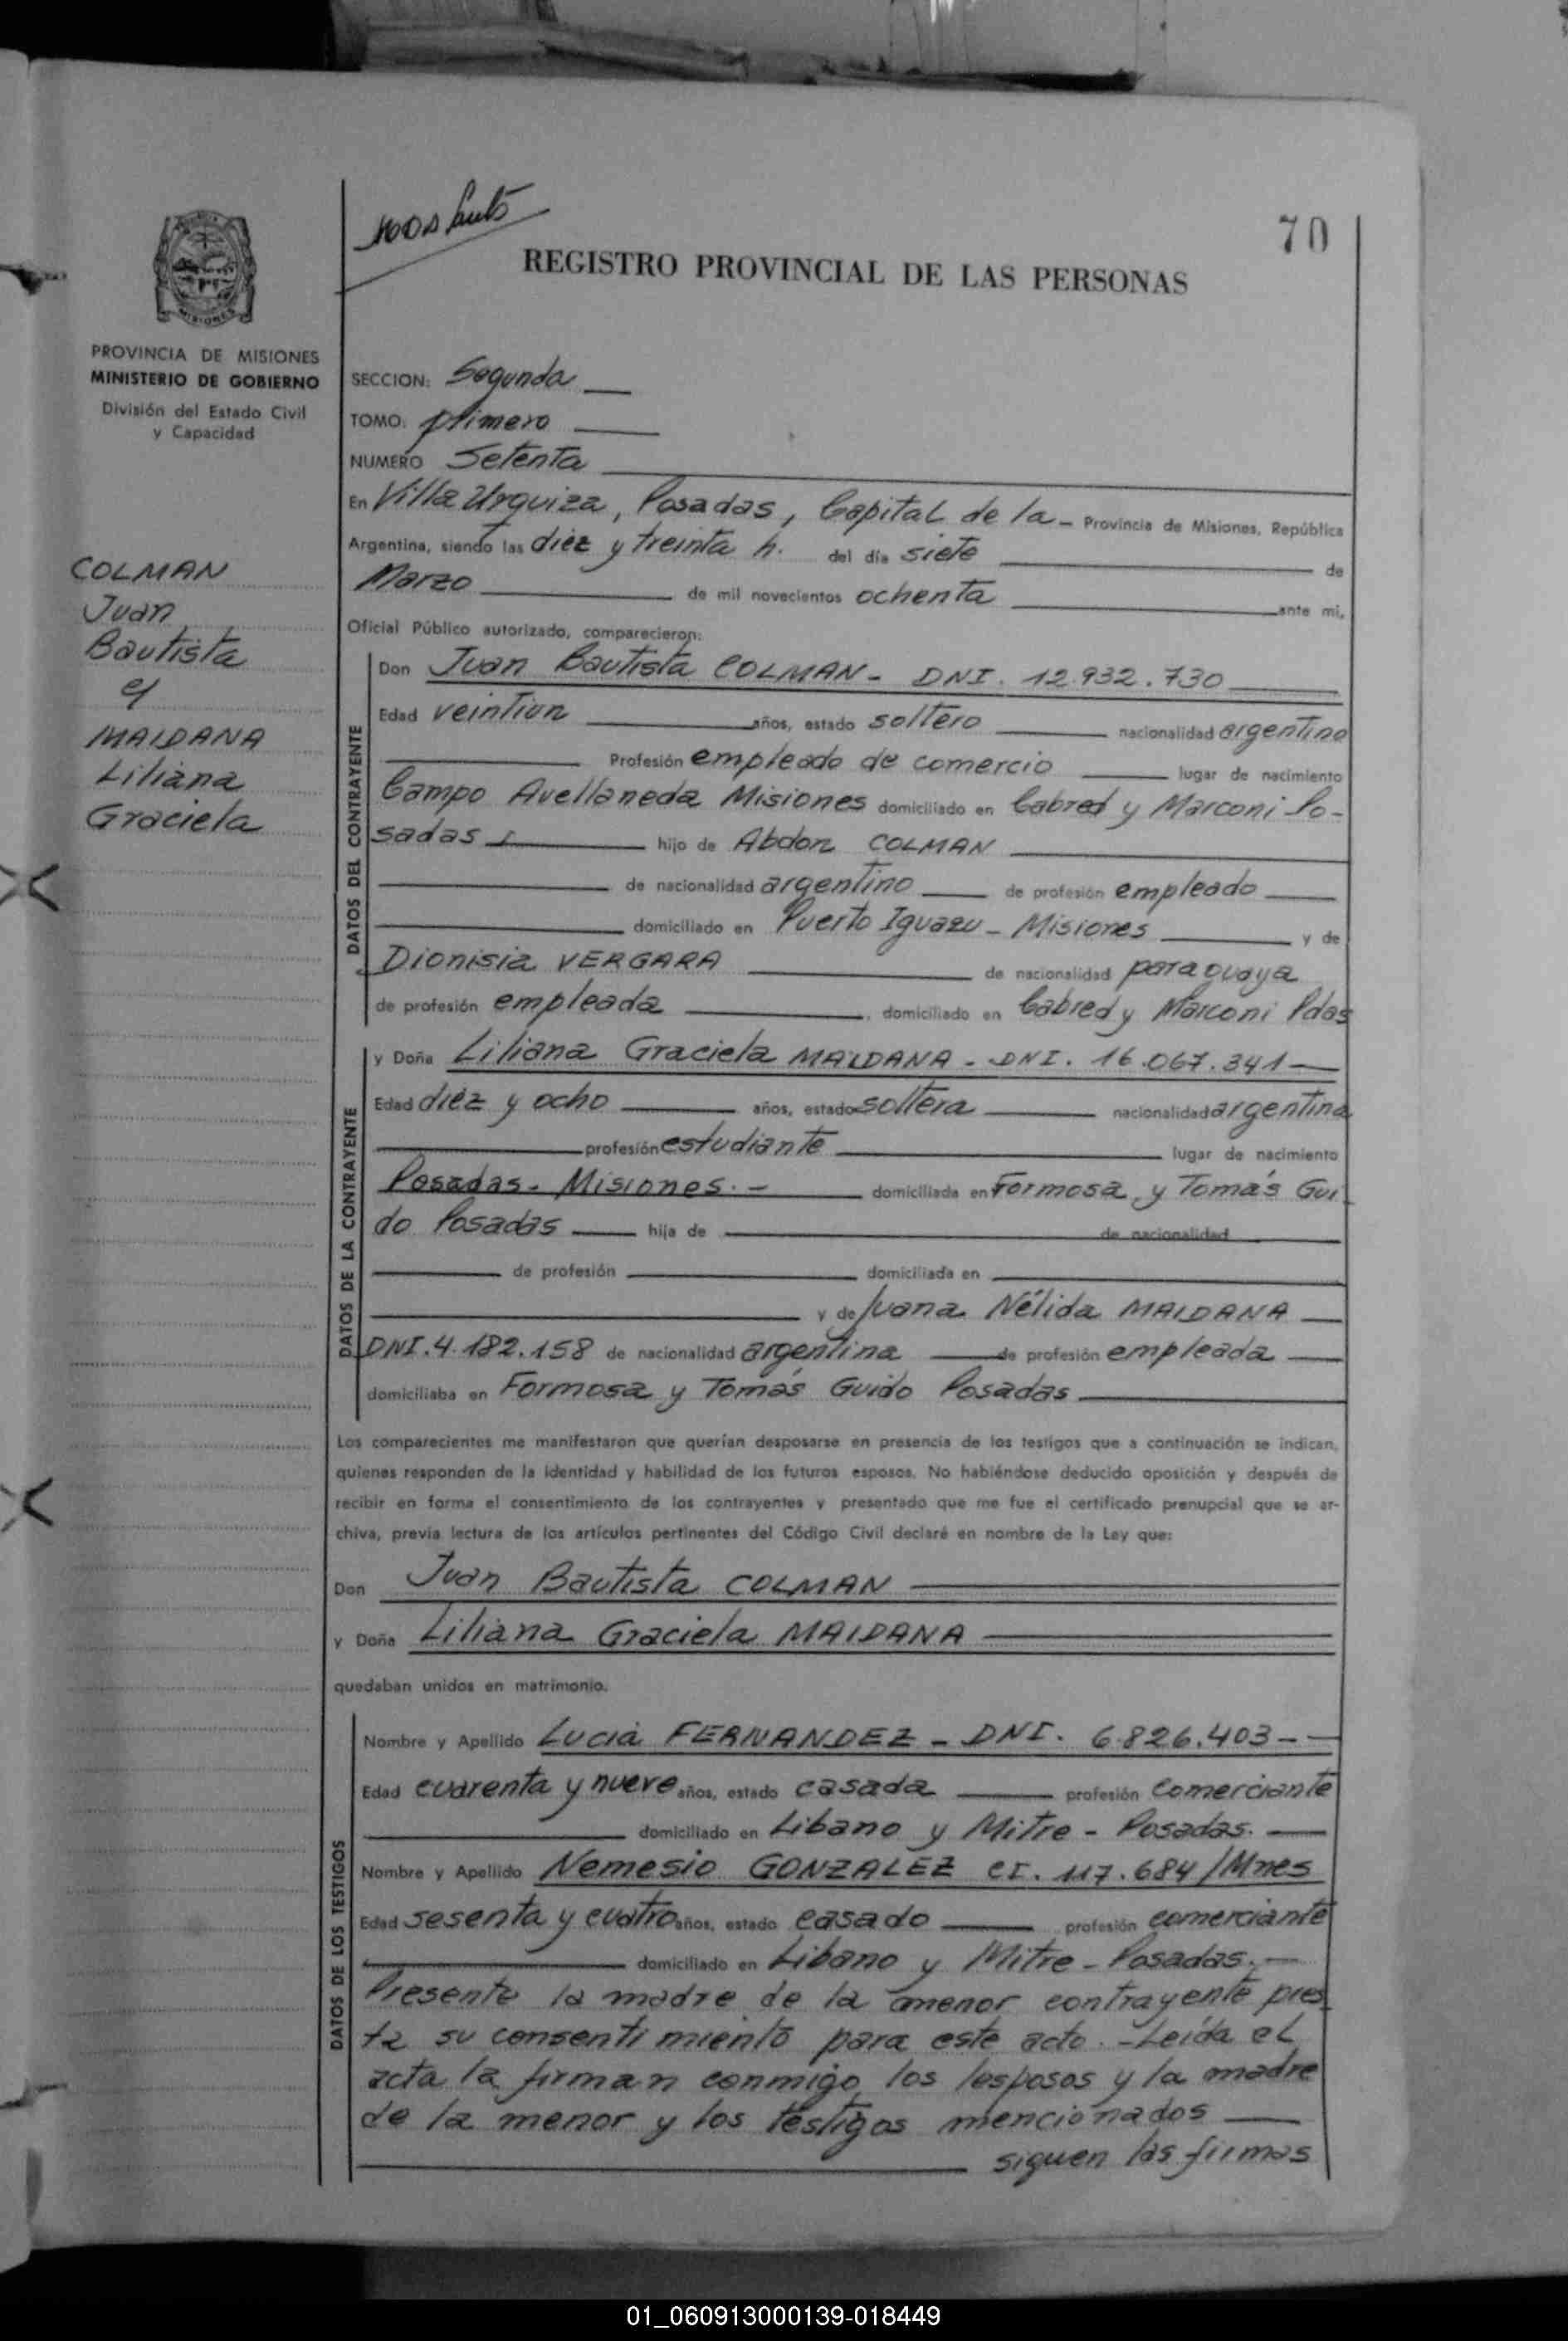 70
REGISTRO PROVINCIAL DE LAS PERSONAS
MISIONES
PROVINCIA DE MISIONES
MINISTERIO DE GOBIERNO
División del Estado Civil
y Capacidad
COLMAN
Juan
Bautista
y
MAIDANA
Liliana
Graciela
SECCION: Segunda
TOMO: primero
NUMERO Setenta
En Villa Urquiza, Posadas, Capital de la - Provincia de Misiones, República
Argentina, siendo las diez y treinta h. del día siete de
Marzo de mil novecientos ochenta ante mi,
Oficial Público autorizado, comparecieron:
DATOS DEL CONTRAYENTE
Don Juan Bautista COLMAN - DNI. 12.932.730
Edad veintiun años, estado soltero nacionalidad argentino
Profesión empleado de comercio lugar de nacimiento
Campo Avellaneda Misiones domiciliado en Cabred y Marconi Po-
sadas hijo de Abdon COLMAN
de nacionalidad argentino de profesión empleado
domiciliado en Puerto Iguazu - Misiones y de
Dionisia VERGARA de nacionalidad paraguaya
de profesión empleada domiciliado en Cabred y Marconi Pdas
DATOS DE LA CONTRAYENTE
y Doña Liliana Graciela MAIDANA - DNI. 16.067.341
Edad diez y ocho años, estado soltera nacionalidad argentina
profesión estudiante lugar de nacimiento
Posadas - Misiones. - domiciliada en Formosa y Tomás Gui
do Posadas hija de de nacionalidad
de profesión domiciliada en
y de Juana Nélida MAIDANA
DNI. 4.182.158 de nacionalidad argentina de profesión empleada
domiciliaba en Formosa y Tomás Guido Posadas
Los comparecientes me manifestaron que querían desposarse en presencia de los testigos que a continuación se indican,
quienes responden de la identidad y habilidad de los futuros esposos. No habiéndose deducido oposición y después de
recibir en forma el consentimiento de los contrayentes y presentado que me fue el certificado prenupcial que se ar-
chiva, previa lectura de los artículos pertinentes del Código Civil declaré en nombre de la Ley que:
Don Juan Bautista COLMAN
y Doña Liliana Graciela MAIDANA
quedaban unidos en matrimonio.
DATOS DE LOS TESTIGOS
Nombre y Apellido Lucia FERNANDEZ - DNI. 6.826.403 -
Edad cuarenta y nueve años, estado casada profesión comerciante
domiciliado en Libano y Mitre - Posadas.
Nombre y Apellido Nemesio GONZALEZ CI. 117.684/Mnes
Edad sesenta y cuatro años, estado casado profesión comerciante
domiciliado en Libano y Mitre - Posadas. -
Presente la madre de la menor contrayente pres
ta su consentimiento para este acto. - Leída el
acta la firman conmigo los esposos y la madre
de la menor y los testigos mencionados
siguen las firmas
01_060913000139-018449